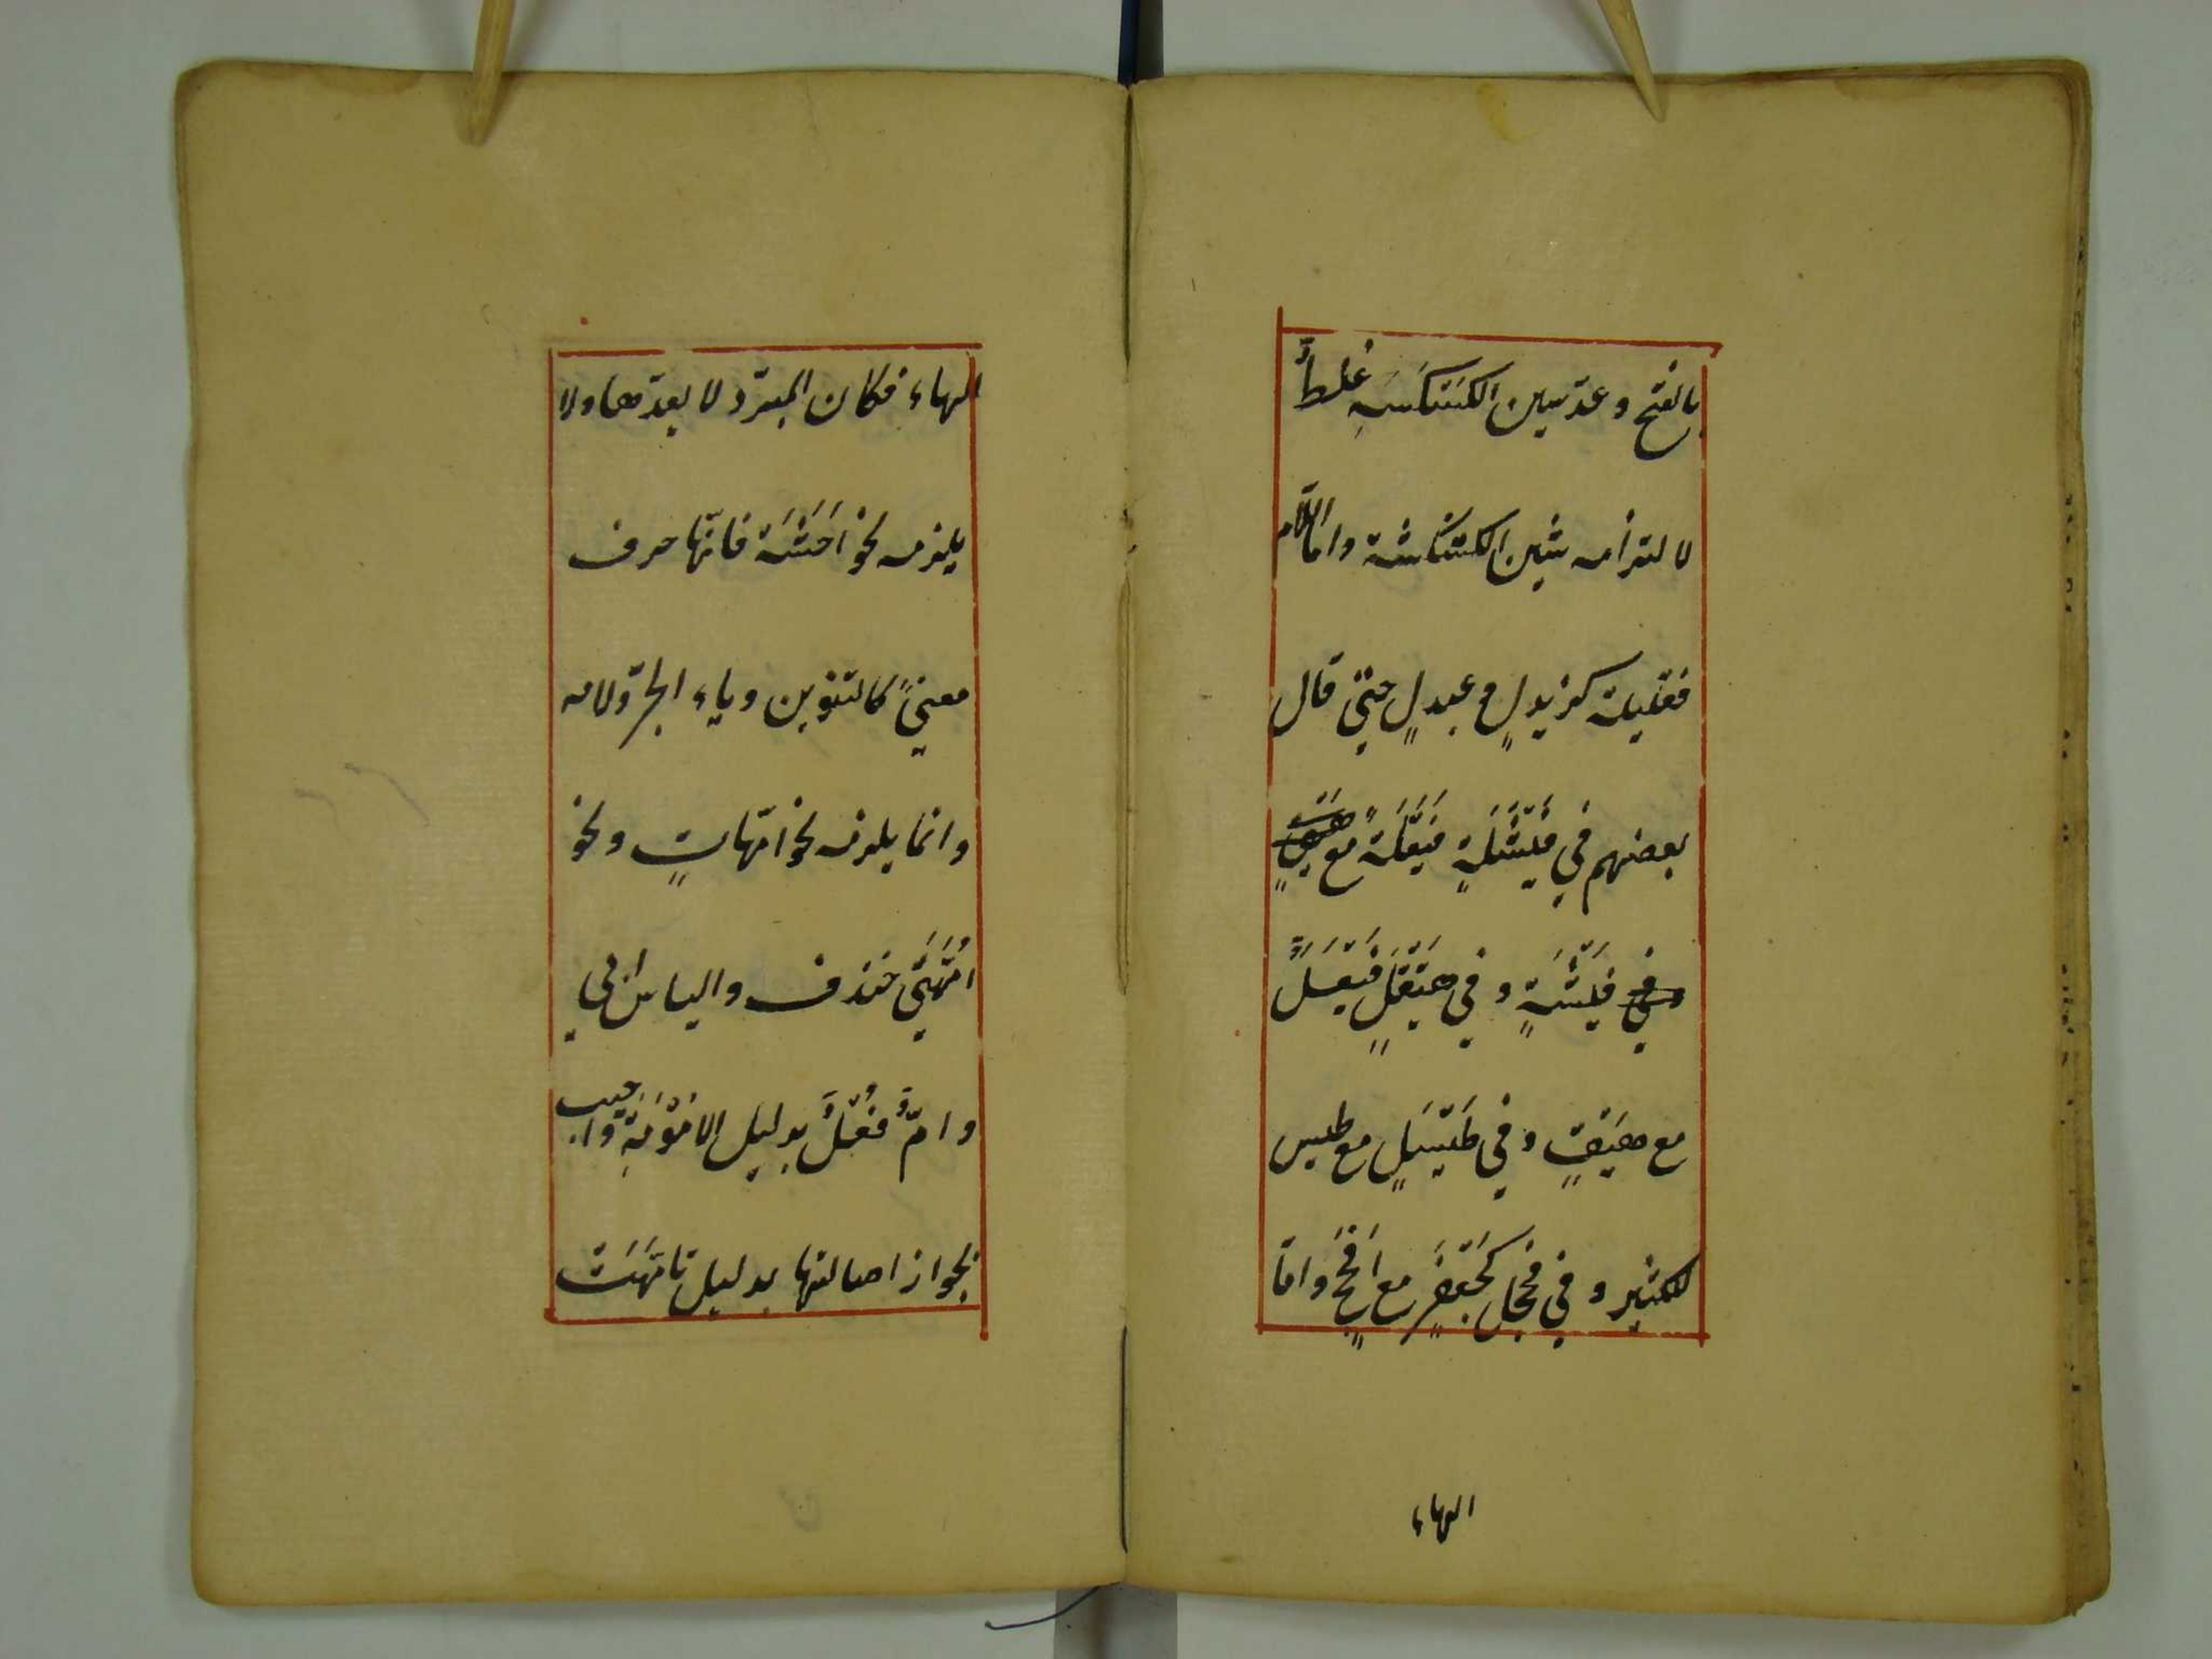 بالفتح وعدّ سين الكَسْكَسَةِ غلطٌ
لالتزامه شين الكشكشة وامّا اللّام
فقليلة كزيدلٍ وعبدلٍ حتّى قال
بعضهم في فَيْشَلَةٍ فَيْعَلَةً مع هيقٍ
وفي فَيْشَةٍ وفي هَيْقَلٍ فَيْعَلٌ
مع هَيْقٍ وفي طَيْسَلٍ مع طيس
للكثير وفي فحجل كَجَعْفَرٍ مع اَفْحَجَ وامّا
الهاء
الهاء فكان المبرّد لا يعدّها ولا
يلزمه نحو اَخْشَهْ فانّها حرف
معنىً كالتنوين وباء الجرّ ولامه
وانما يلزمه نحو امّهاتٍ ونحو
اُمَّهَتِي خندف والياس ابي
وامٌّ فُعْلٌ بدليل الاُمُوْمَةِ واجيب
بجواز اصالتها بدليل تاَمَّهَتْ